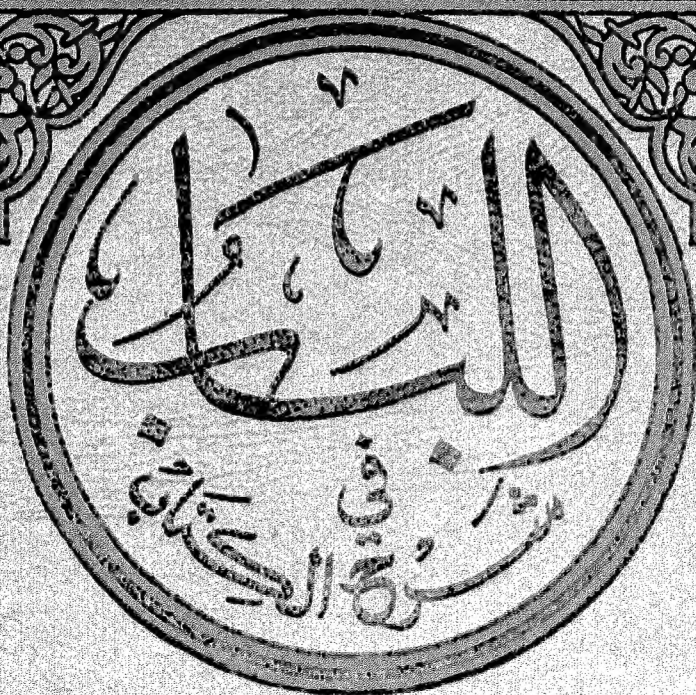 اللباب
في
شرح الكتاب